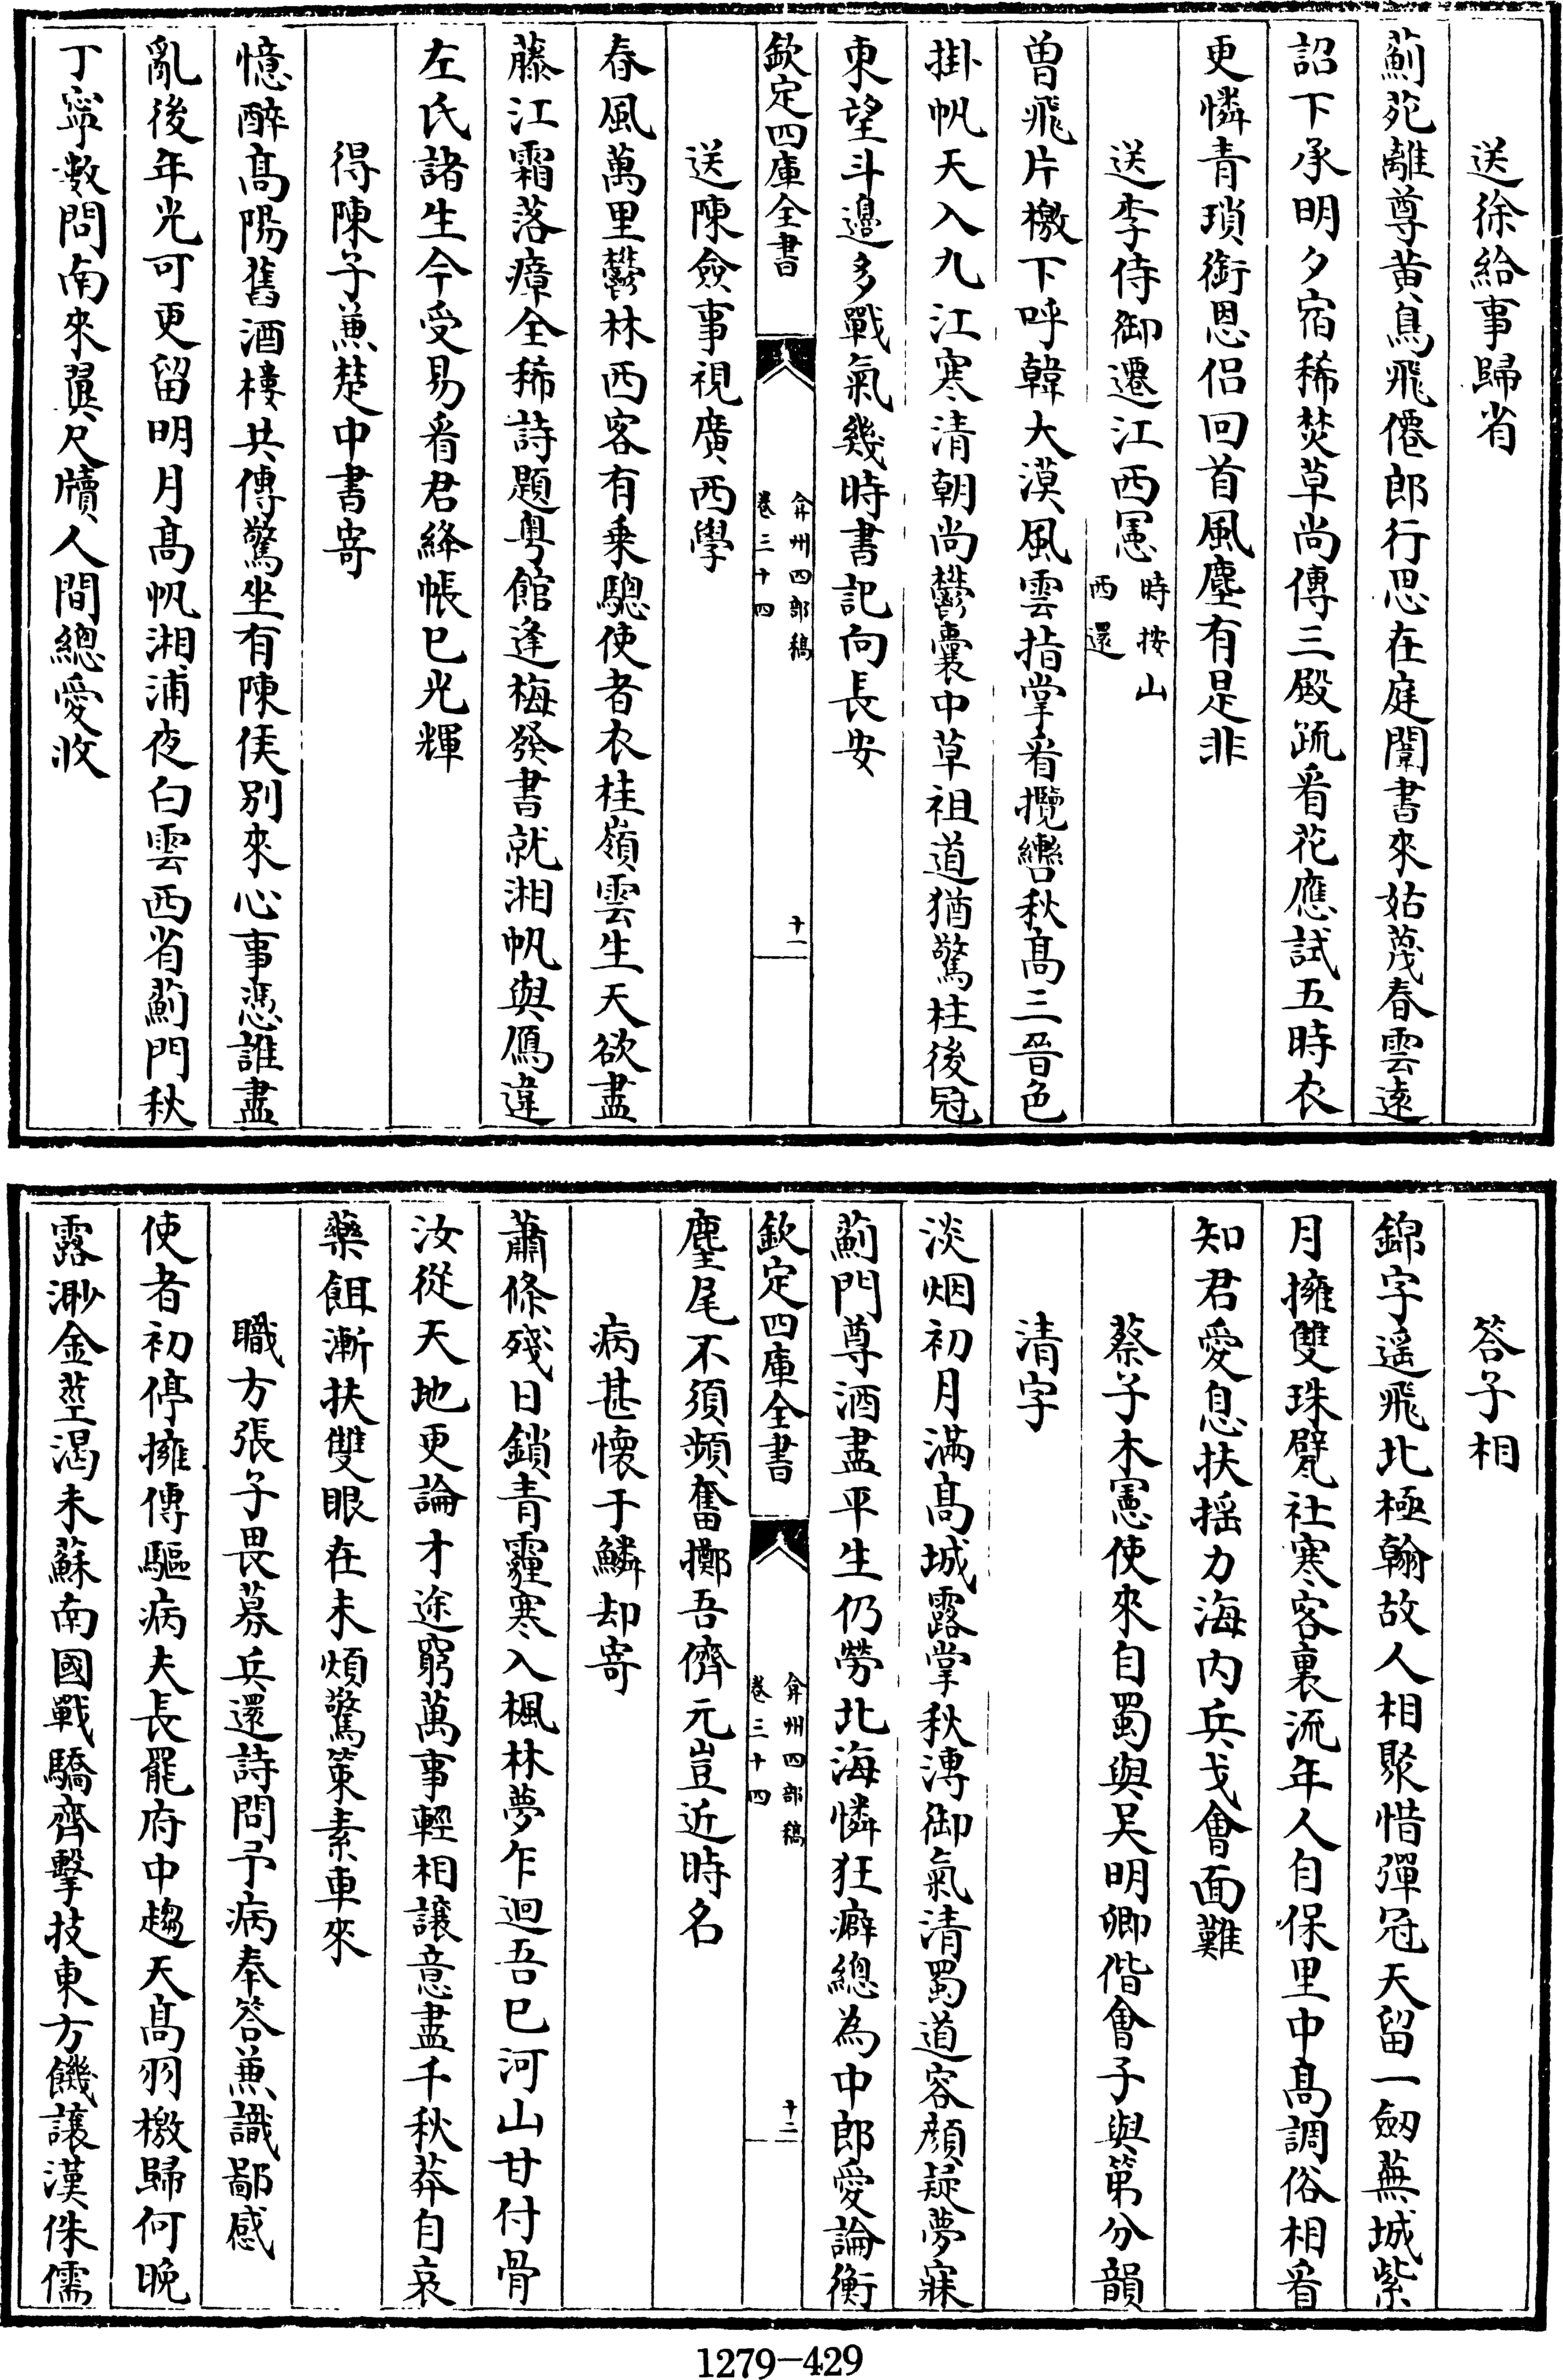 送徐給事歸省
薊苑離尊黄鳥飛僊郎行思在庭闈書來姑蔑春雲遠
詔下承明夕宿稀焚草尚傳三殿疏看花應試五時衣
更憐青瑣銜恩侣回首風塵有是非
送李侍御遷江西憲時按山西還
曽飛片檄下呼韓大漠風雲指掌看攬轡秋髙三晉色
掛帆天入九江寒清朝尚鬱囊中草祖道猶驚柱後冠
東望斗邉多戰氣幾時書記向長安
欽定四庫全書
弇州四部稿
卷三十四
十一
送陳僉事視廣西學
春風萬里鬱林西客有乗驄使者衣桂嶺雲生天欲盡
藤江霜落瘴全稀詩題粤館逢梅發書就湘帆與鴈違
左氏諸生今受易看君絳帳已光輝
得陳子兼楚中書寄
憶醉髙陽舊酒樓共傳驚坐有陳侯别來心事憑誰盡
亂後年光可更留明月髙帆湘浦夜白雲西省薊門秋
丁寧數問南來翼尺牘人間總愛收
答子相
錦字遥飛北極翰故人相聚惜彈冠天留一劒蕪城紫
月擁雙珠甓社寒客裏流年人自保里中髙調俗相看
知君愛息扶摇力海内兵戈㑹面難
蔡子木憲使來自蜀與吴明卿偕㑹子與第分韻
清字
淡烟初月滿髙城露掌秋漙御氣清蜀道容顔疑夢寐
薊門尊酒盡平生仍勞北海憐狂癖總為中郎愛論衡
欽定四庫全書
弇州四部稿
卷三十四
十二
麈尾不須頻奮擲吾儕元豈近時名
病甚懷于鱗却寄
蕭條殘日鎖青霾寒入楓林夢乍迴吾已河山甘付骨
汝從天地更論才途窮萬事輕相讓意盡千秋莽自哀
藥餌漸扶雙眼在未煩驚策素車來
職方張子畏募兵還詩問予病奉答兼識鄙感
使者初停擁傳驅病夫長罷府中趨天髙羽檄歸何晚
露渺金莖渴未蘇南國戰驕齊擊技東方饑讓漢侏儒
1279-429